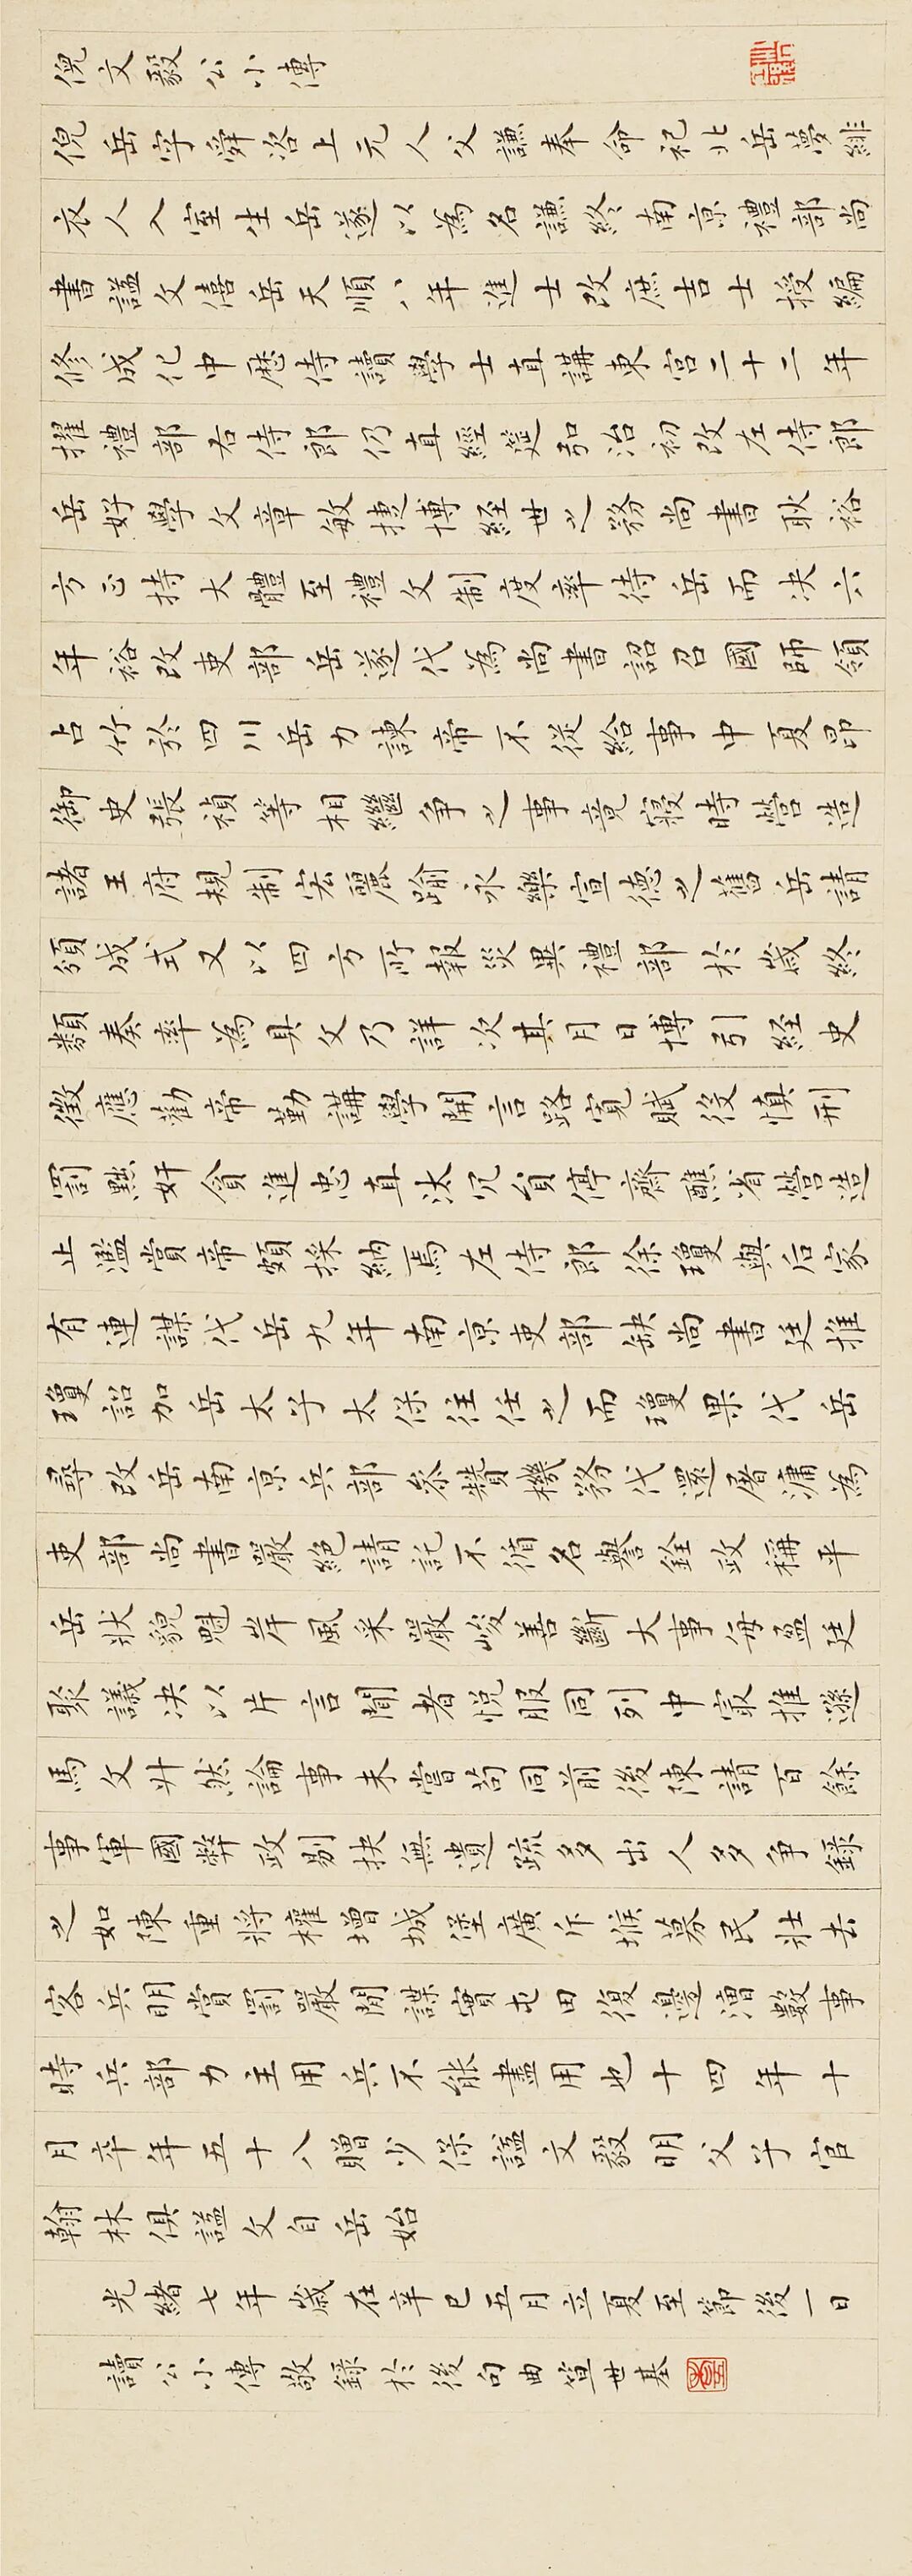 倪文毅公小傳
倪岳字舜咨上元人父謙奉命祀北岳夢緋
衣人入室生岳遂以為名謙終南京禮部尚
書謚文僖岳天順八年進士改庶吉士授編
修成化中歷侍讀學士直講東宮二十二年
擢禮部右侍郎仍直經筵弘治初改左侍郎
岳好學文章敏捷博經世之務尚書耿裕
方正持大體至禮文制度率待岳而決六
年裕改吏部岳遂代為尚書詔召國師領
占竹於四川岳力諫帝不從給事中夏昂
御史張禎等相繼爭之事竟寢時營造
諸王府規制宏麗踰永樂宣德之舊岳請
頒成式又以四方所報災異禮部於歲終
類奏率為具文乃詳次其月日博引經史
徵應勸帝勤講學開言路寬賦役慎刑
罰黜奸貪進忠直汰冗員停齋醮省營造
止濫賞帝頗採納焉左侍郎徐瓊與后家
有連謀代岳九年南京吏部缺尚書廷推
瓊詔加岳太子太保往任之而瓊果代岳
尋改岳南京兵部參贊機務代還屠滽為
吏部尚書嚴絕請託不循名譽銓政稱平
岳狀貌魁岸風采嚴峻善斷大事每盈廷
聚議決以片言聞者悅服同列中寂推遜
馬文升然論事未嘗苟同前後陳請百餘
事軍國弊政剔抉無遺疏多出人多爭錄
之如陳重將權增城堡廣斥堠募民壯去
客兵明賞罰嚴間諜實屯田復邊漕數事
時兵部力主用兵不能盡用也十四年十
月卒年五十八贈少保謚文毅明父子官
翰林俱謚文自岳始
光緒七年歲在辛巳五月立夏至節後一日
讀公小傳敬錄於後句曲笪世基